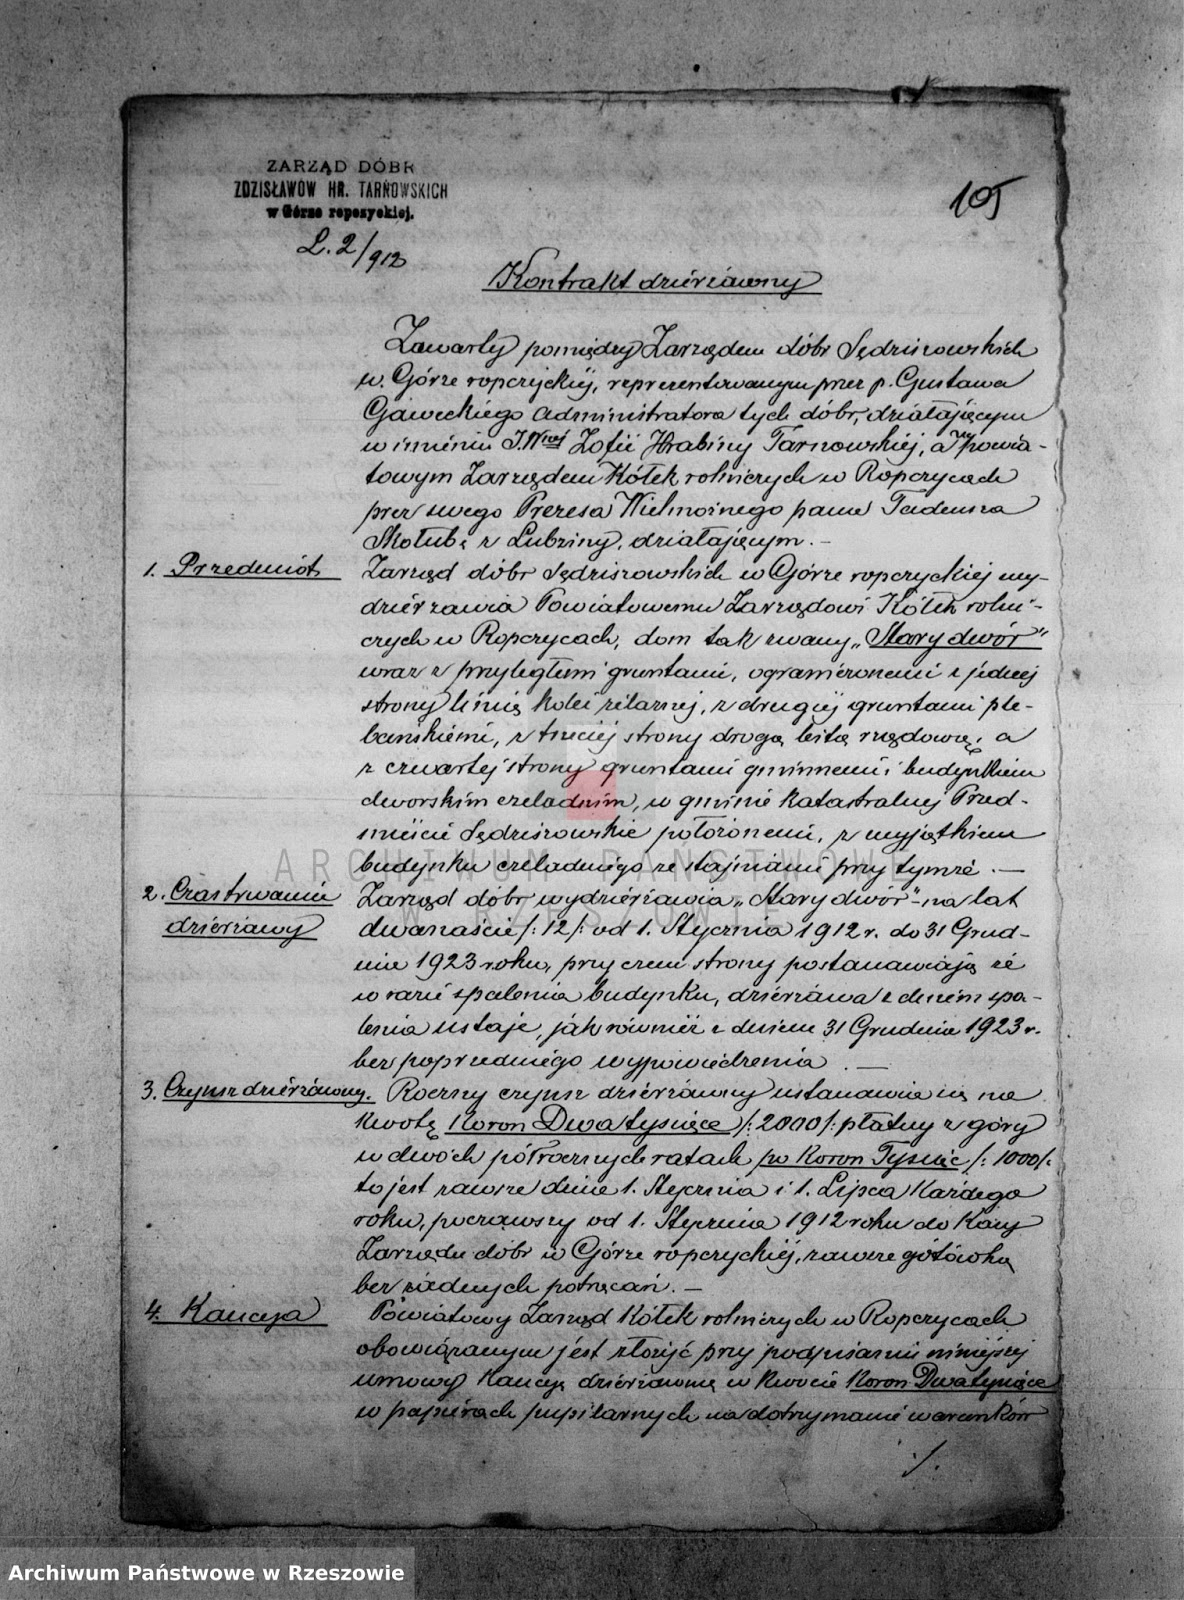 ZARZĄD DÓBR
ZDZISŁAWÓW HR. TARNOWSKICH
w Górze ropczyckiej.
L. 2/912
105
Kontrakt dzierżawny
Zawarty pomiędzy Zarządem dóbr Sędziszowskich
w Górze ropczyckiéj, reprezentowanym przez p. Gustawa
Gaweckiego administratora tych dóbr, działającym
w imieniu J.Wnej Zofii Hrabiny Tarnowskiej, a powia-
towym Zarządem Kółek rolniczych w Ropczycach
przez swego Prezesa Wielmożnego pana Tadeusza
Skołubę z Lubziny, działającym. -
1. Przedmiot
Zarząd dóbr Sędziszowskich w Górze ropczyckiej wy-
dzierzawia Powiatowemu Zarządowi Kółek rolni-
czych w Ropczycach, dom tak zwany „Stary dwór"
wraz z przyległemi gruntami, ograniczonemi z jednej
strony linią kolei żelaznej, z drugiej gruntami ple-
bańskiemi, z trzeciej strony drogą bitą rządową, a
z czwartej strony gruntami gminnemi i budynkiem
dworskim czeladnim, w gminie katastralnej Przed-
mieście Sędziszowskie położonemi, z wyjątkiem
budynku czeladniego ze stajniami przy tymże. —
2. Czas trwania
dzierżawy
Zarząd dóbr wydzierżawia „Stary dwór" na lat
dwanaście /: 12 /: od 1. Stycznia 1912 r. do 31 Grud-
nia 1923 roku, przyczem strony postanawiają że
w razie spalenia budynku, dzierżawa z dniem spa-
lenia ustaje, jak również z dniem 31 Grudnia 1923 r.
bez poprzedniego wypowiedzenia. —
3. Czynsz dzierżawny.
Roczny czynsz dzierżawny ustanawia się na
kwotę Koron Dwa tysiące /: 2000 /: płatny z góry
w dwóch półrocznych ratach po Koron Tysiąc /: 1000 /:
to jest zawsze dnia 1. Stycznia i 1. Lipca każdego
roku, począwszy od 1. Stycznia 1912 roku do Kasy
Zarządu dóbr w Górze ropczyckiéj, zawsze gotówką
bez żadnych potrąceń. —
4. Kaucya
Powiatowy Zarząd Kółek rolniczych w Ropczycach
obowiązanym jest złożyć przy podpisaniu niniejszej
umowy kaucyę dzierżawną w kwocie Koron Dwa tysiące
w papierach pupilarnych na dotrzymanie warunków
./.
ARCHIWUM PAŃSTWOWE
W RZESZOWIE
Archiwum Państwowe w Rzeszowie